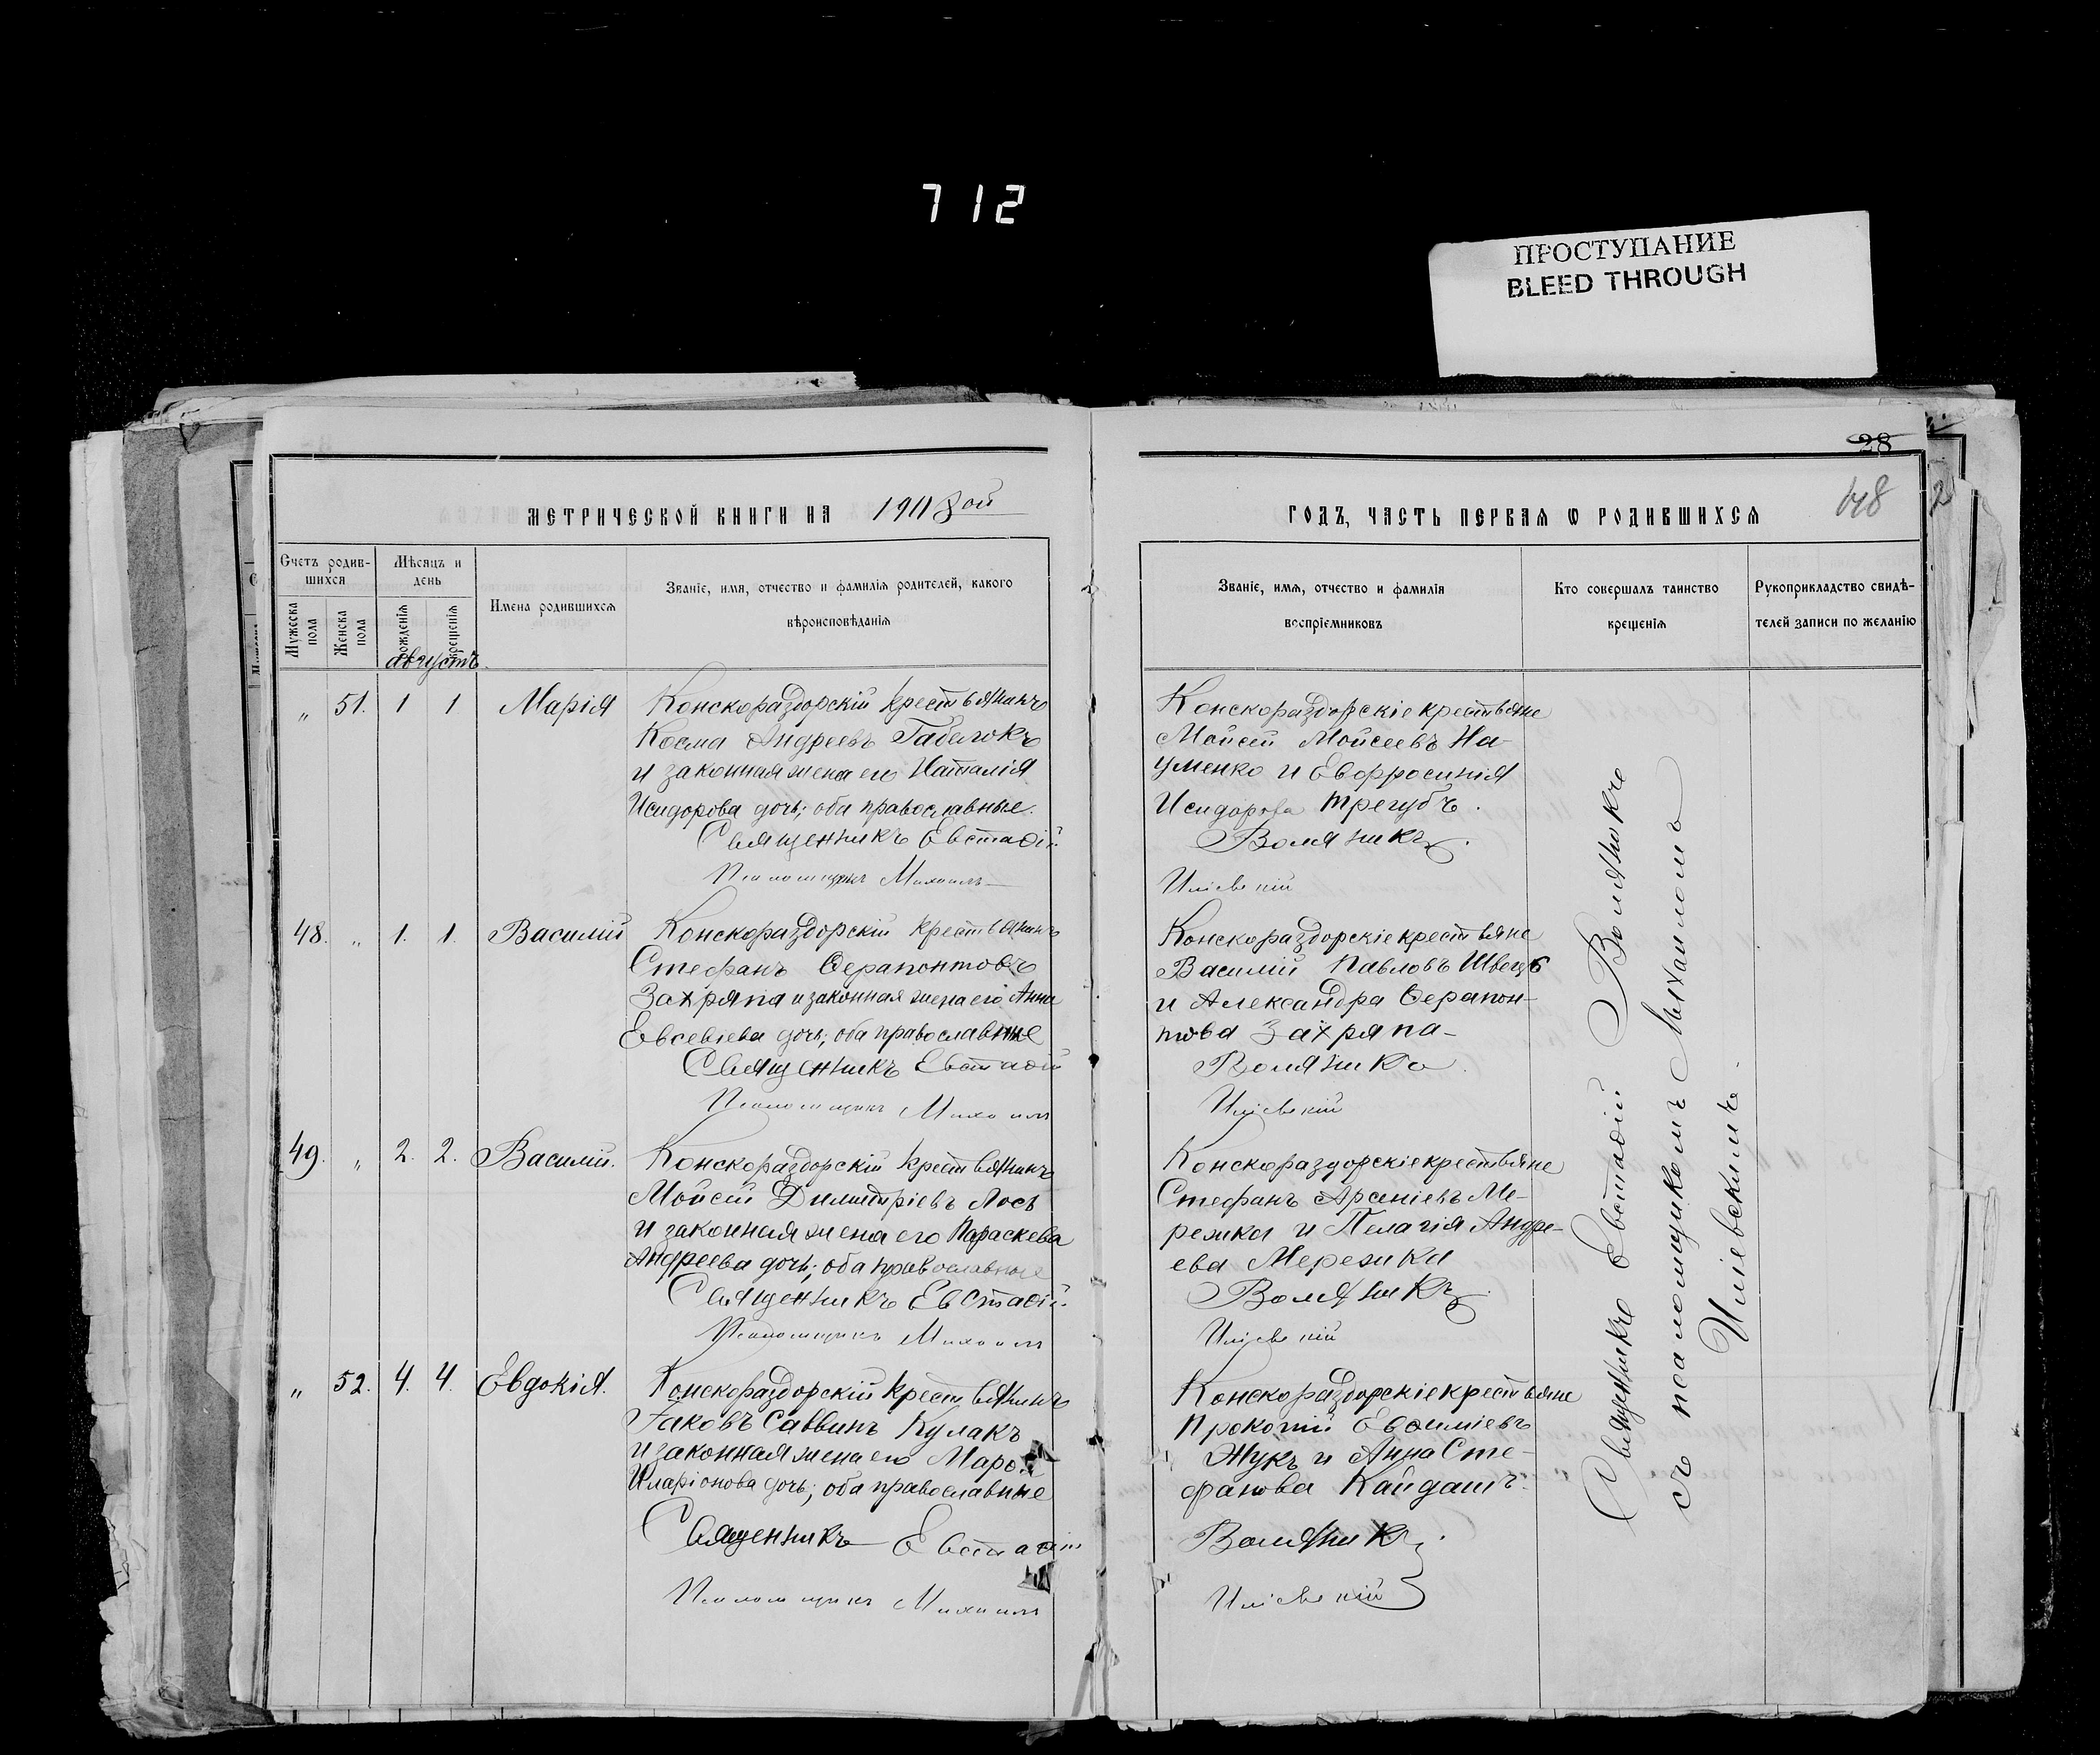 712
ПРОСТУПАНИЕ
BLEED THROUGH
28
148
2
МЕТРИЧЕСКОЙ КНИГИ НА 1908ой
ГОДЪ, ЧАСТЬ ПЕРВАЯ Ѡ РОДИВШИХСЯ
Счетъ родив-
шихся
Мужеска
пола
Женска
пола
Мѣсяцъ и
день
рожденія
крещенія
Имена родившихся
Званіе, имя, отчество и фамилія родителей, какого
вѣроисповѣданія
Званіе, имя, отчество и фамилія
воспріемниковъ
Кто совершалъ таинство
крещенія
Рукоприкладство свидѣ-
телей записи по желанію
августъ
„ 51. 1 1 Марія
Конскораздорскій крестьянинъ
Косма Андреевъ
и законная жена его Наталія
Исидорова дочь; оба православные.
Священникъ Евстаѳій
Псаломщикъ Михаилъ
Конскораздорскіе крестьяне
Мойсей Мойсеевъ На-
уменко и Евфросинія
Исидорова Трегубъ.
Воляникъ.
Иліевскій
48. „ 1. 1. Василій
Конскораздорскій крестьянинъ
Стефанъ Ѳерапонтовъ
Захряпа и законная жена его Анна
Евсевіева дочь; оба православные
Священникъ Евстаѳій
Псаломщикъ Михаилъ
Конскораздорскіе крестьяне
Василій Павловъ Швецъ
и Александра Ѳерапон-
това Захряпа
Воляникъ.
Иліевскій
49. „ 2. 2. Василій.
Конскораздорскій крестьянинъ
Мойсей Димитріевъ Лось
и законная жена его Параскева
Андреева дочь; оба православные
Священникъ Евстаѳій
Псаломщикъ Михаилъ
Конскораздорскіе крестьяне
Стефанъ Арсеніевъ Ме-
режка и Пелагія Андре-
ева Мережка
Воляникъ.
Иліевскій
„ 52. 4. 4. Евдокія.
Конскораздорскій крестьянинъ
Іаковъ Саввинъ Кулакъ
и законная жена его
Иларіонова дочь; оба православные
Священникъ Евстаѳій
Псаломщикъ Михаилъ
Конскораздорскіе крестьяне
Прокопій Евѳиміевъ
Жукъ и Анна Сте-
фанова Кайдашъ.
Воляникъ.
Иліевскій
Священникъ Евстаѳій Воляникъ
съ псаломщикомъ Михаиломъ
Иліевскимъ.